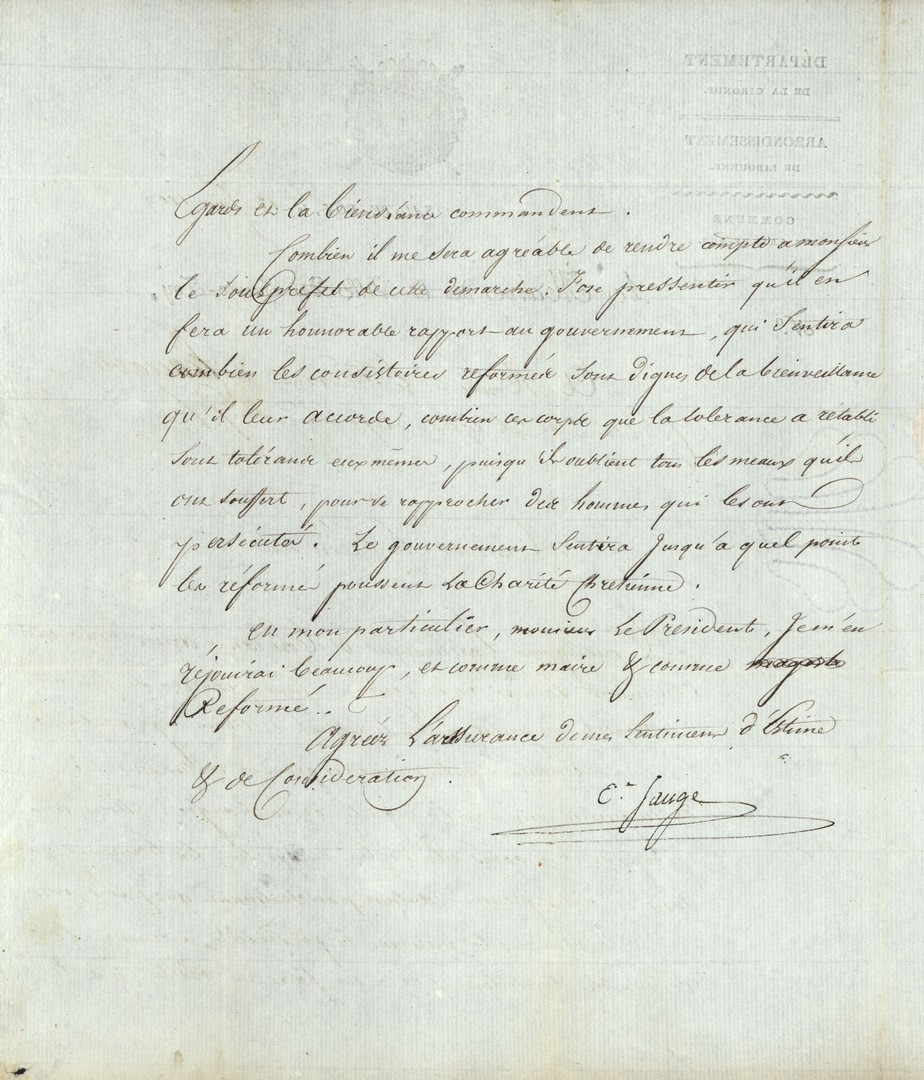 Egards et la bienséance commandent.
Combien il me sera agréable de rendre compte a monsieur
le sous préfet de cette demarche. J'ose pressentir qu'il en
fera un honnorable rapport au gouvernement, qui Sentira
combien les consistoires reformés sont dignes de la bienveillance
qu'il leur accorde, combien ces corps que la tolerance a retabli
sont tolérands euxmêmes, puisqu'ils oublient tous les meaux qu'ils
ont souffert, pour se rapprocher des hommes qui les ont
persécutés. Le gouvernement Sentira Jusqu'a quel point
les réformés poussent La Charité Chretienne.
en mon particulier, monsieur Le President, Je m'en
réjouirai beaucoup, et comme maire & comme
Reformé..
Agréés L'assurance de mes Sentimens d'Estime
& de Consideration.
DÉPARTEMENT
DE LA GIRONDE.
ARRONDISSEMENT
DE LIBOURNE.
COMMUNE